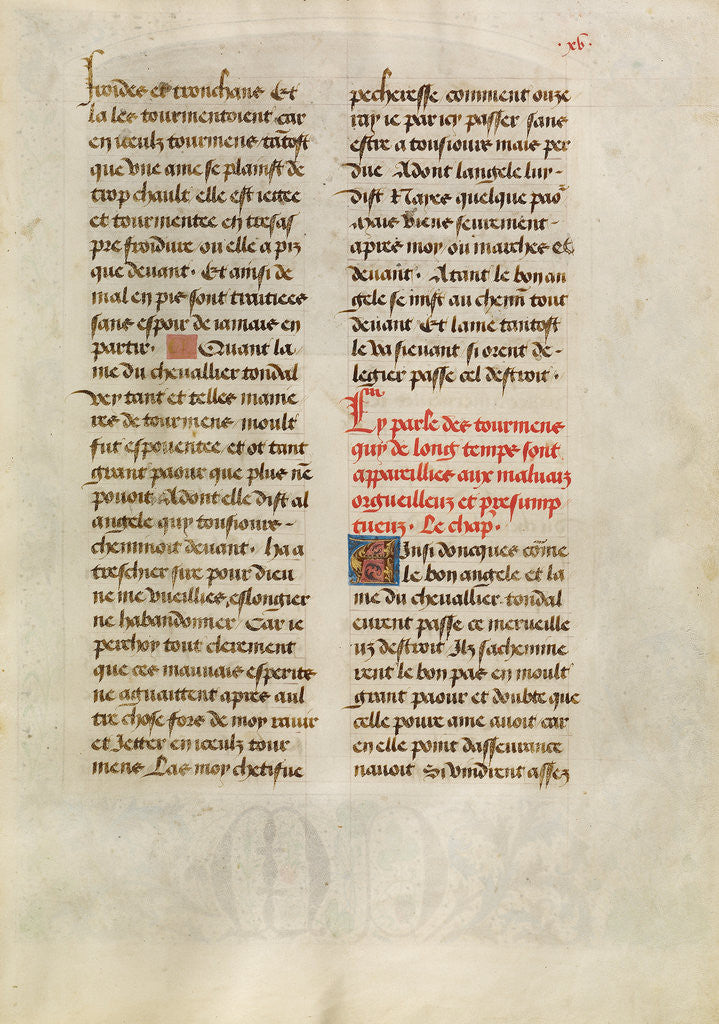 ·xv·
froides et tronchans Et
la les tourmentoient car
en iceulz tourmens tātost
que vne ame se plainst de
trop chault elle est iettee
et tourmentee en tresas
pre froidure ou elle a piz
que deuant· Et ainsi de
mal en pis sont traitiees
sans espoir de iamais en
partir· Quant la
me du cheuallier tondal
vey tant et telles manie
res de tourmens moult
fut espouentee et ot tant
grant paour que plus nē
pouoit Adont elle dist al
angele quy tousiours-
cheminoit deuant· ha a
treschier sire pour dieu
ne me vueillies eslongier
ne habandonner Car ie
perchoy tout clerement
que ces mauuais esperits
ne aguaittent apres aul
tre chose fors de moy rauir
et Jetter en iceulz tour
mens Las moy chetifue
pecheresse comment ouze
ray ie par icy passer sans
estre a tousiours mais per
due Adont langele luy-
dist Nayes quelque paō
Mais viens seurement-
apres moy ou marches et
deuant· Atant le bon an
gele se mist au chemī tout
deuant Et lame tantost
le va sieuant si orent de-
legier passe cel destroit·
Cy parle des tourmens
quy de long temps sont
appareillies aux maluaiz
orgueilleuz et presump
tueuz· Le chap· iiii
Ainsi doncques cōme
le bon angele et la
me du cheuallier tondal
eurent passe ce merueille
uz destroit Jlz sachemine
rent le bon pas en moult
grant paour et doubte que
celle poure ame auoit car
en elle point dasseurance
nauoit Si vindrent assez